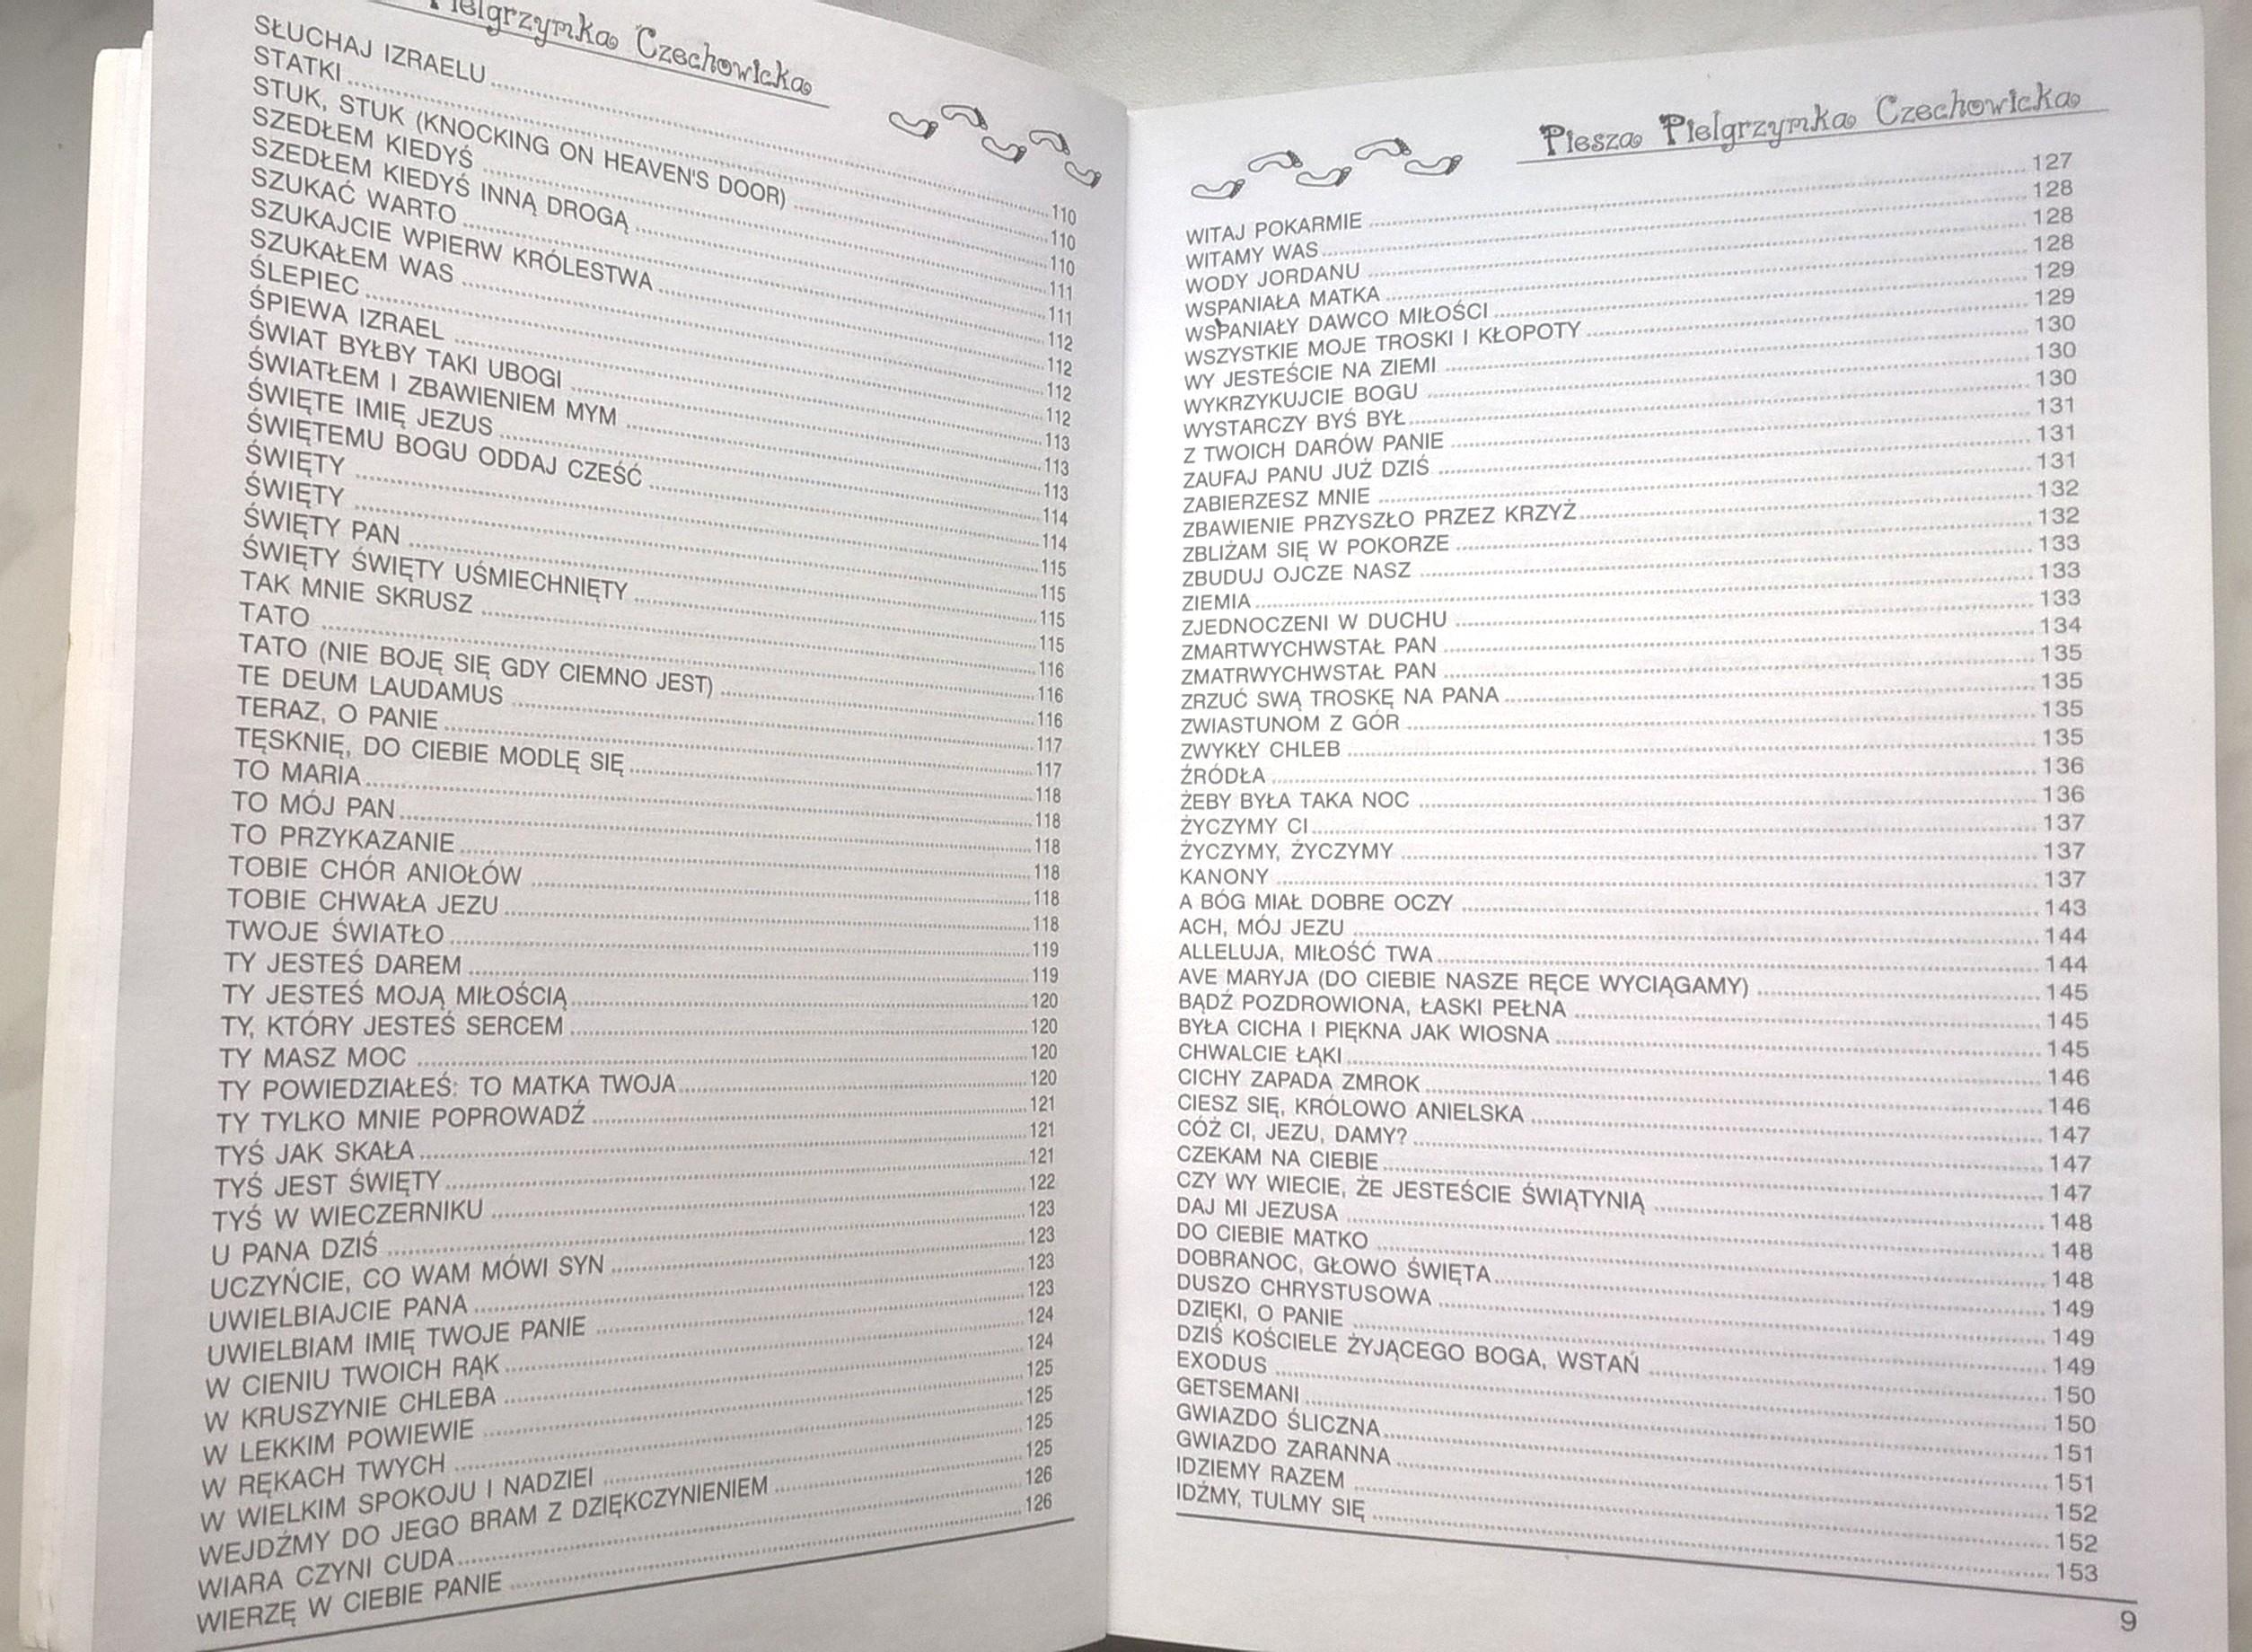 Pielgrzymka Czechowicka
SŁUCHAJ IZRAELU 110
STATKI 110
STUK, STUK (KNOCKING ON HEAVEN'S DOOR) 110
SZEDŁEM KIEDYŚ 111
SZEDŁEM KIEDYŚ INNĄ DROGĄ 111
SZUKAĆ WARTO 112
SZUKAJCIE WPIERW KRÓLESTWA 112
SZUKAŁEM WAS 112
ŚLEPIEC 112
ŚPIEWA IZRAEL 113
ŚWIAT BYŁBY TAKI UBOGI 113
ŚWIATŁEM I ZBAWIENIEM MYM 113
ŚWIĘTE IMIĘ JEZUS 114
ŚWIĘTEMU BOGU ODDAJ CZEŚĆ 114
ŚWIĘTY 115
ŚWIĘTY 115
ŚWIĘTY PAN 115
ŚWIĘTY ŚWIĘTY UŚMIECHNIĘTY 115
TAK MNIE SKRUSZ 116
TATO 116
TATO (NIE BOJĘ SIĘ GDY CIEMNO JEST) 116
TE DEUM LAUDAMUS 117
TERAZ, O PANIE 117
TĘSKNIĘ, DO CIEBIE MODLĘ SIĘ 118
TO MARIA 118
TO MÓJ PAN 118
TO PRZYKAZANIE 118
TOBIE CHÓR ANIOŁÓW 118
TOBIE CHWAŁA JEZU 118
TWOJE ŚWIATŁO 119
TY JESTEŚ DAREM 119
TY JESTEŚ MOJĄ MIŁOŚCIĄ 120
TY, KTÓRY JESTEŚ SERCEM 120
TY MASZ MOC 120
TY POWIEDZIAŁEŚ: TO MATKA TWOJA 120
TY TYLKO MNIE POPROWADŹ 121
TYŚ JAK SKAŁA 121
TYŚ JEST ŚWIĘTY 121
TYŚ W WIECZERNIKU 122
U PANA DZIŚ 123
UCZYŃCIE, CO WAM MÓWI SYN 123
UWIELBIAJCIE PANA 123
UWIELBIAM IMIĘ TWOJE PANIE 123
W CIENIU TWOICH RĄK 124
W KRUSZYNIE CHLEBA 124
W LEKKIM POWIEWIE 125
W RĘKACH TWYCH 125
W WIELKIM SPOKOJU I NADZIEI 125
WEJDŹMY DO JEGO BRAM Z DZIĘKCZYNIENIEM 125
WIARA CZYNI CUDA 126
WIERZĘ W CIEBIE PANIE 126
Piesza Pielgrzymka Czechowicka
WITAJ POKARMIE 127
WITAMY WAS 128
WODY JORDANU 128
WSPANIAŁA MATKA 128
WSPANIAŁY DAWCO MIŁOŚCI 129
WSZYSTKIE MOJE TROSKI I KŁOPOTY 129
WY JESTEŚCIE NA ZIEMI 130
WYKRZYKUJCIE BOGU 130
WYSTARCZY BYŚ BYŁ 130
Z TWOICH DARÓW PANIE 131
ZAUFAJ PANU JUŻ DZIŚ 131
ZABIERZESZ MNIE 131
ZBAWIENIE PRZYSZŁO PRZEZ KRZYŻ 132
ZBLIŻAM SIĘ W POKORZE 132
ZBUDUJ OJCZE NASZ 133
ZIEMIA 133
ZJEDNOCZENI W DUCHU 133
ZMARTWYCHWSTAŁ PAN 134
ZMATRWYCHWSTAŁ PAN 135
ZRZUĆ SWĄ TROSKĘ NA PANA 135
ZWIASTUNOM Z GÓR 135
ZWYKŁY CHLEB 135
ŹRÓDŁA 136
ŻEBY BYŁA TAKA NOC 136
ŻYCZYMY CI 137
ŻYCZYMY, ŻYCZYMY 137
KANONY 137
A BÓG MIAŁ DOBRE OCZY 143
ACH, MÓJ JEZU 144
ALLELUJA, MIŁOŚĆ TWA 144
AVE MARYJA (DO CIEBIE NASZE RĘCE WYCIĄGAMY) 145
BĄDŹ POZDROWIONA, ŁASKI PEŁNA 145
BYŁA CICHA I PIĘKNA JAK WIOSNA 145
CHWALCIE ŁĄKI 146
CICHY ZAPADA ZMROK 146
CIESZ SIĘ, KRÓLOWO ANIELSKA 147
CÓŻ CI, JEZU, DAMY? 147
CZEKAM NA CIEBIE 147
CZY WY WIECIE, ŻE JESTEŚCIE ŚWIĄTYNIĄ 148
DAJ MI JEZUSA 148
DO CIEBIE MATKO 148
DOBRANOC, GŁOWO ŚWIĘTA 149
DUSZO CHRYSTUSOWA 149
DZIĘKI, O PANIE 149
DZIŚ KOŚCIELE ŻYJĄCEGO BOGA, WSTAŃ 150
EXODUS 150
GETSEMANI 151
GWIAZDO ŚLICZNA 151
GWIAZDO ZARANNA 152
IDZIEMY RAZEM 152
IDŹMY, TULMY SIĘ 153
9